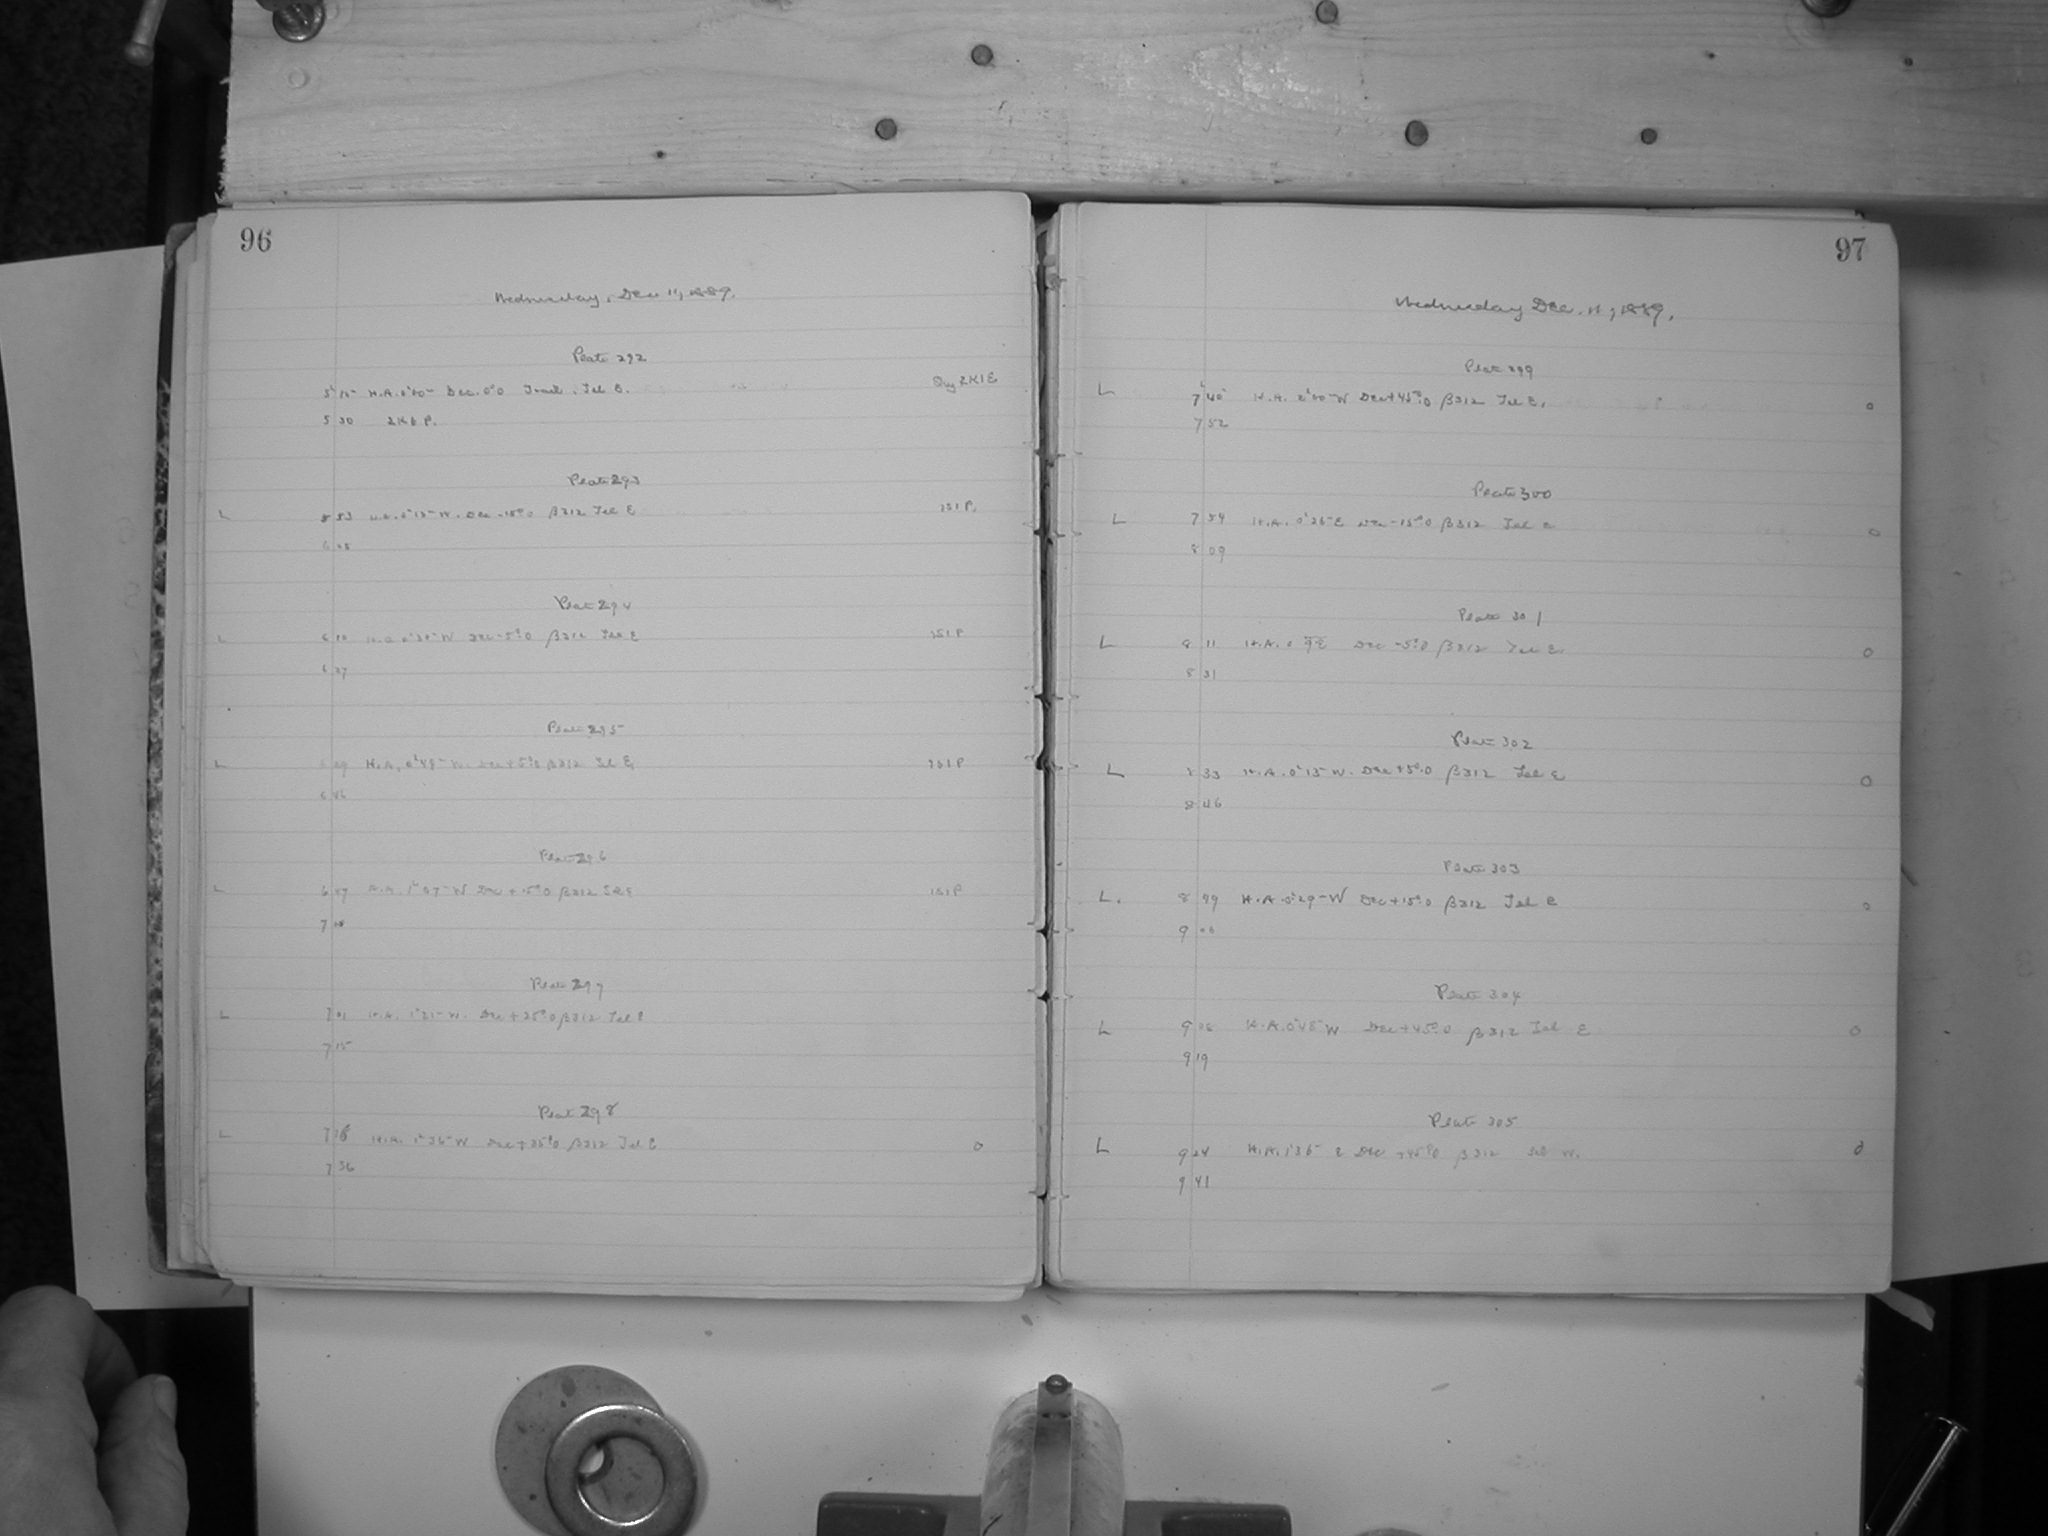 96
Wednesday, Dec 11, 1889.
Plate 292
5 15 H.A. 0h 00m Dec. 0°.0 Trail. Tel E.
5 30
Plate 293
L 5 53 H.A. 0h 15m W. Dec -15°.0 β312 Tel E 151 P.
6 05
Plate 294
L 6 10 H.A. W Dec -5°.0 β312 Tel E 151 P
6 27
Plate 295
L H.A. 0h 48m W. Dec +5°.0 β312 Tel E, 151 P
6 46
Plate 296
L 6 47 H.A. 1h 07m W Dec +15°.0 β312 Tel E 151 P
7
Plate 297
L 7 01 H.A. 1h 21m W. Dec +25°.0 β312 Tel E
7 15
Plate 298
L 7 18 H.A. 1h 36m W Dec +35°.0 β312 Tel E 0
7 36
97
Wednesday Dec. 11, 1889.
Plate 299
L 7 40 H.A. W Dec +45°.0 β312 Tel E. 0
7 52
Plate 300
L 7 54 H.A. 0h E Dec -15°.0 β312 Tel E 0
8 09
Plate 301
L 8 11 H.A. 0 E Dec -5°.0 β312 Tel E. 0
8 31
Plate 302
L 8 33 H.A. 0h 15m W. Dec +5°.0 β312 Tel E 0
8 46
Plate 303
L. 8 49 H.A. 0h 29m W Dec +15°.0 β312 Tel E 0
9 06
Plate 304
L 9 08 H.A. 0h 48m W Dec +45°.0 β312 Tel E 0
9 19
Plate 305
L 9 24 H.A. 1h 36m E Dec +45°.0 β312 Tel W. 0
9 41